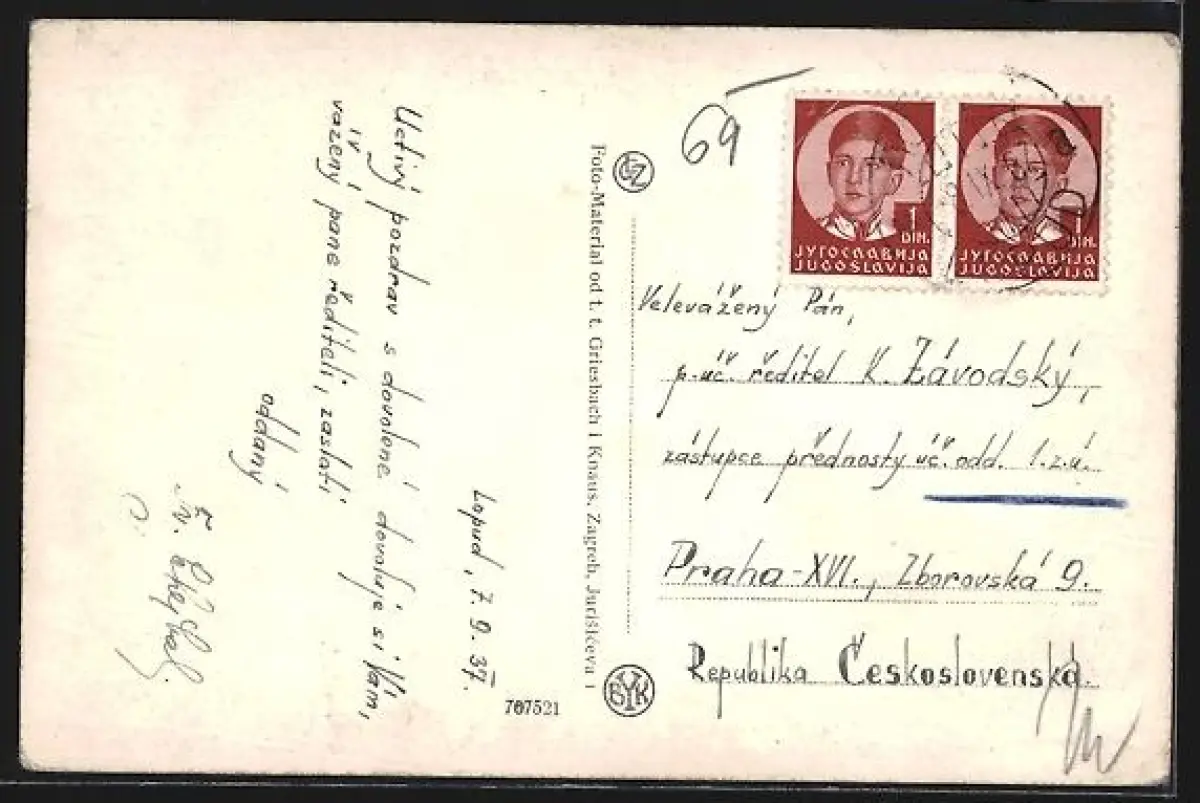 Lopud, 7. 9. 37.
Uctivý pozdrav s dovolené dovoluje si Vám,
vážený pane řediteli, zaslati
oddaný
Foto-Material od t. t. Griesbach i Knaus, Zagreb, Jurišićeva 1
BYK
707521
69
1
DIN.
ЈУГОСЛАВИЈА
JUGOSLAVIJA
1
DIN.
ЈУГОСЛАВИЈА
JUGOSLAVIJA
Velevážený Pán,
p. uč. ředitel K. Závodský,
zástupce přednosty úč. odd. l.z.ú.
Praha-XVI., Zborovská 9.
Republika Československá.